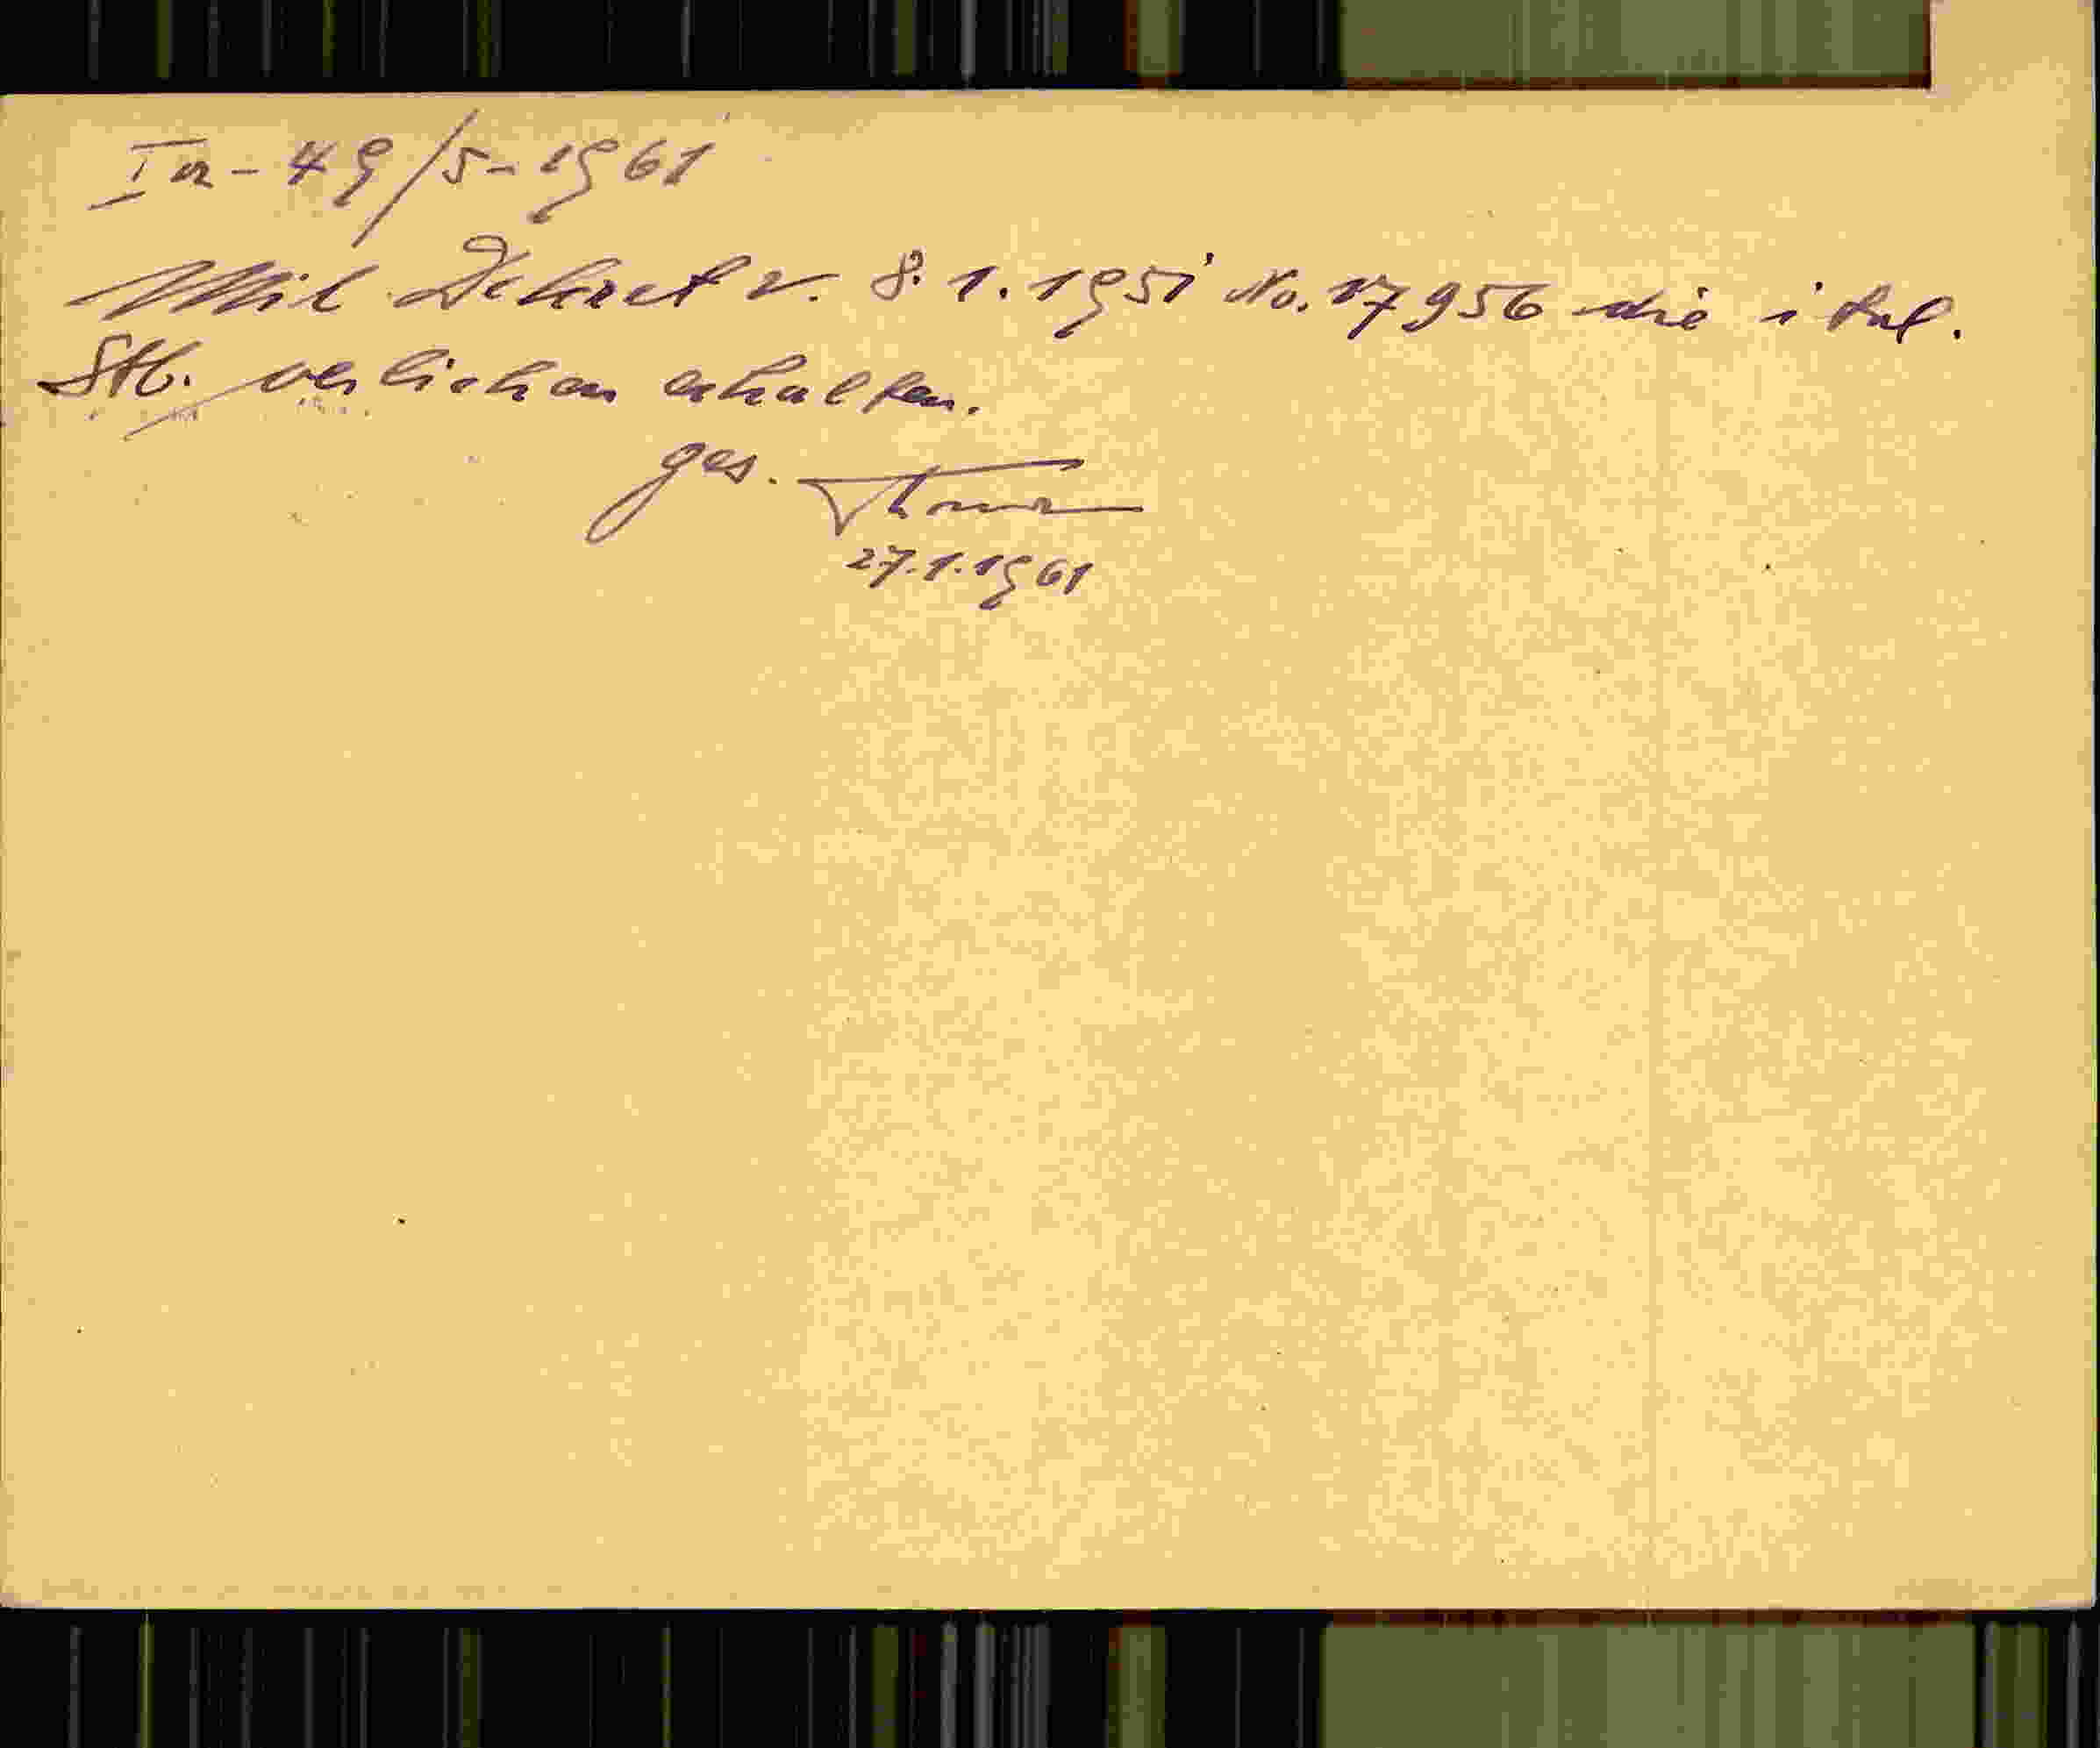 Ia - 49/5 - 1961
Mit Dekret v. 8. 1. 1951 No. 17956 die ital.
Stb. verliehen erhalten.
ges.
27.1.1961